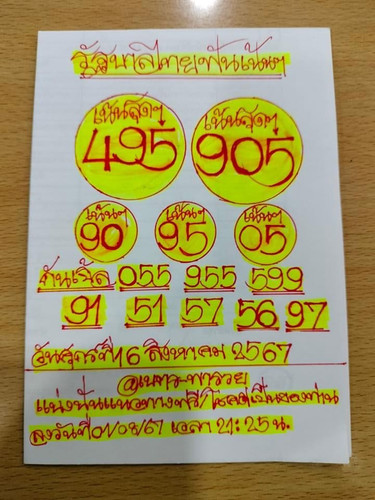 รัฐบาลไทยฟันเน้นๆ
เน้นสุดๆ เน้นสุดๆ
495 905
เน้นๆ เน้นๆ เน้นๆ
90 95 05
กันเบิ้ล 055 955 599
91 51 57 56 97
วันศุกร์ที่16 สิงหาคม 2567
แบ่งปันแนวทางฟรี โชคดีเป็นของท่าน
ลงวันที่ 01/08/67 เวลา 21:25 น.